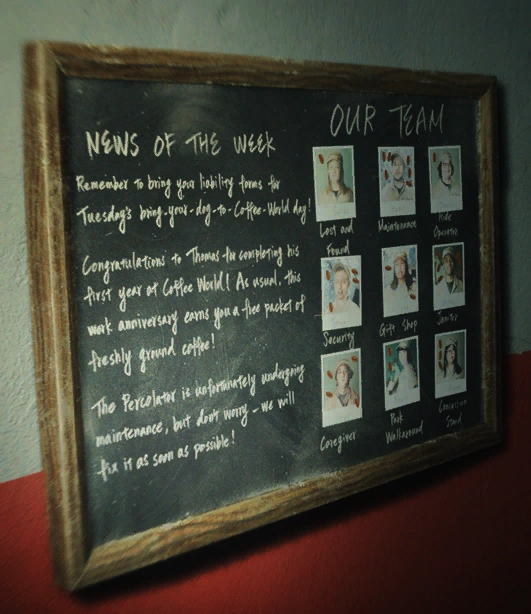 NEWS OF THE WEEK
Remember to bring your liability forms for
Tuesday's bring-your-dog-to-Coffee-World day!
Congratulations to Thomas for completing his
first year at Coffee World! As usual, this
work anniversary earns you a free packet of
freshly ground coffee!
The Percolator is unfortunately undergoing
maintenance, but don't worry - we will
fix it as soon as possible!
OUR TEAM
Lost and
Found
Maintenance
Ride
Operator
Security
Gift Shop
Janitor
Caregiver
Park
Walkaround
Concession
Stand